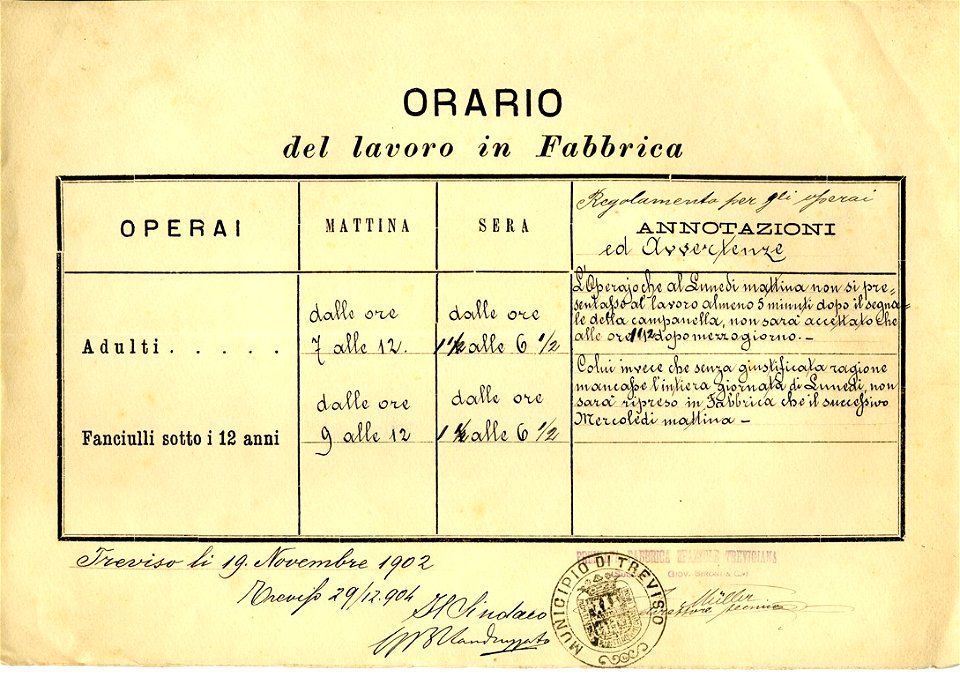 ORARIO
del lavoro in Fabbrica
OPERAI
MATTINA
SERA
Regolamento per gli operai
ANNOTAZIONI
ed Avvertenze
Adulti . . . . .
dalle ore
7 alle 12.
dalle ore
1 1/2 alle 6 1/2
L'Operajo che al Lunedì mattina non si pre=
sentasse al lavoro almeno 5 minuti dopo il segna=
le della campanella, non sarà accettato che
alle ore 1 1/2 dopo mezzogiorno. —
Fanciulli sotto i 12 anni
dalle ore
9 alle 12
dalle ore
1 1/2 alle 6 1/2
Colui invece che senza giustificata ragione
mancasse l'intiera giornata di Lunedì, non
sarà ripreso in Fabbrica che il successivo
Mercoledì mattina —
Treviso li 19. Novembre 1902
FABBRICA TREVIGIANA
Treviso 29/12.904
Il Sindaco
MUNICIPIO DI TREVISO
Müller
Direttore tecnico